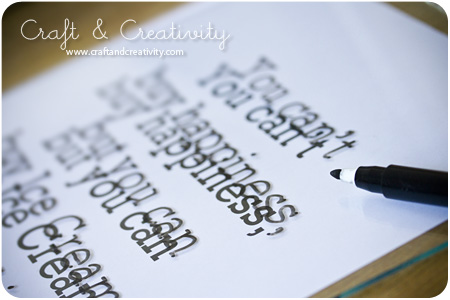 Craft & Creativity
www.craftandcreativity.com
You can't
buy happiness,
but you can
buy Ice Cream